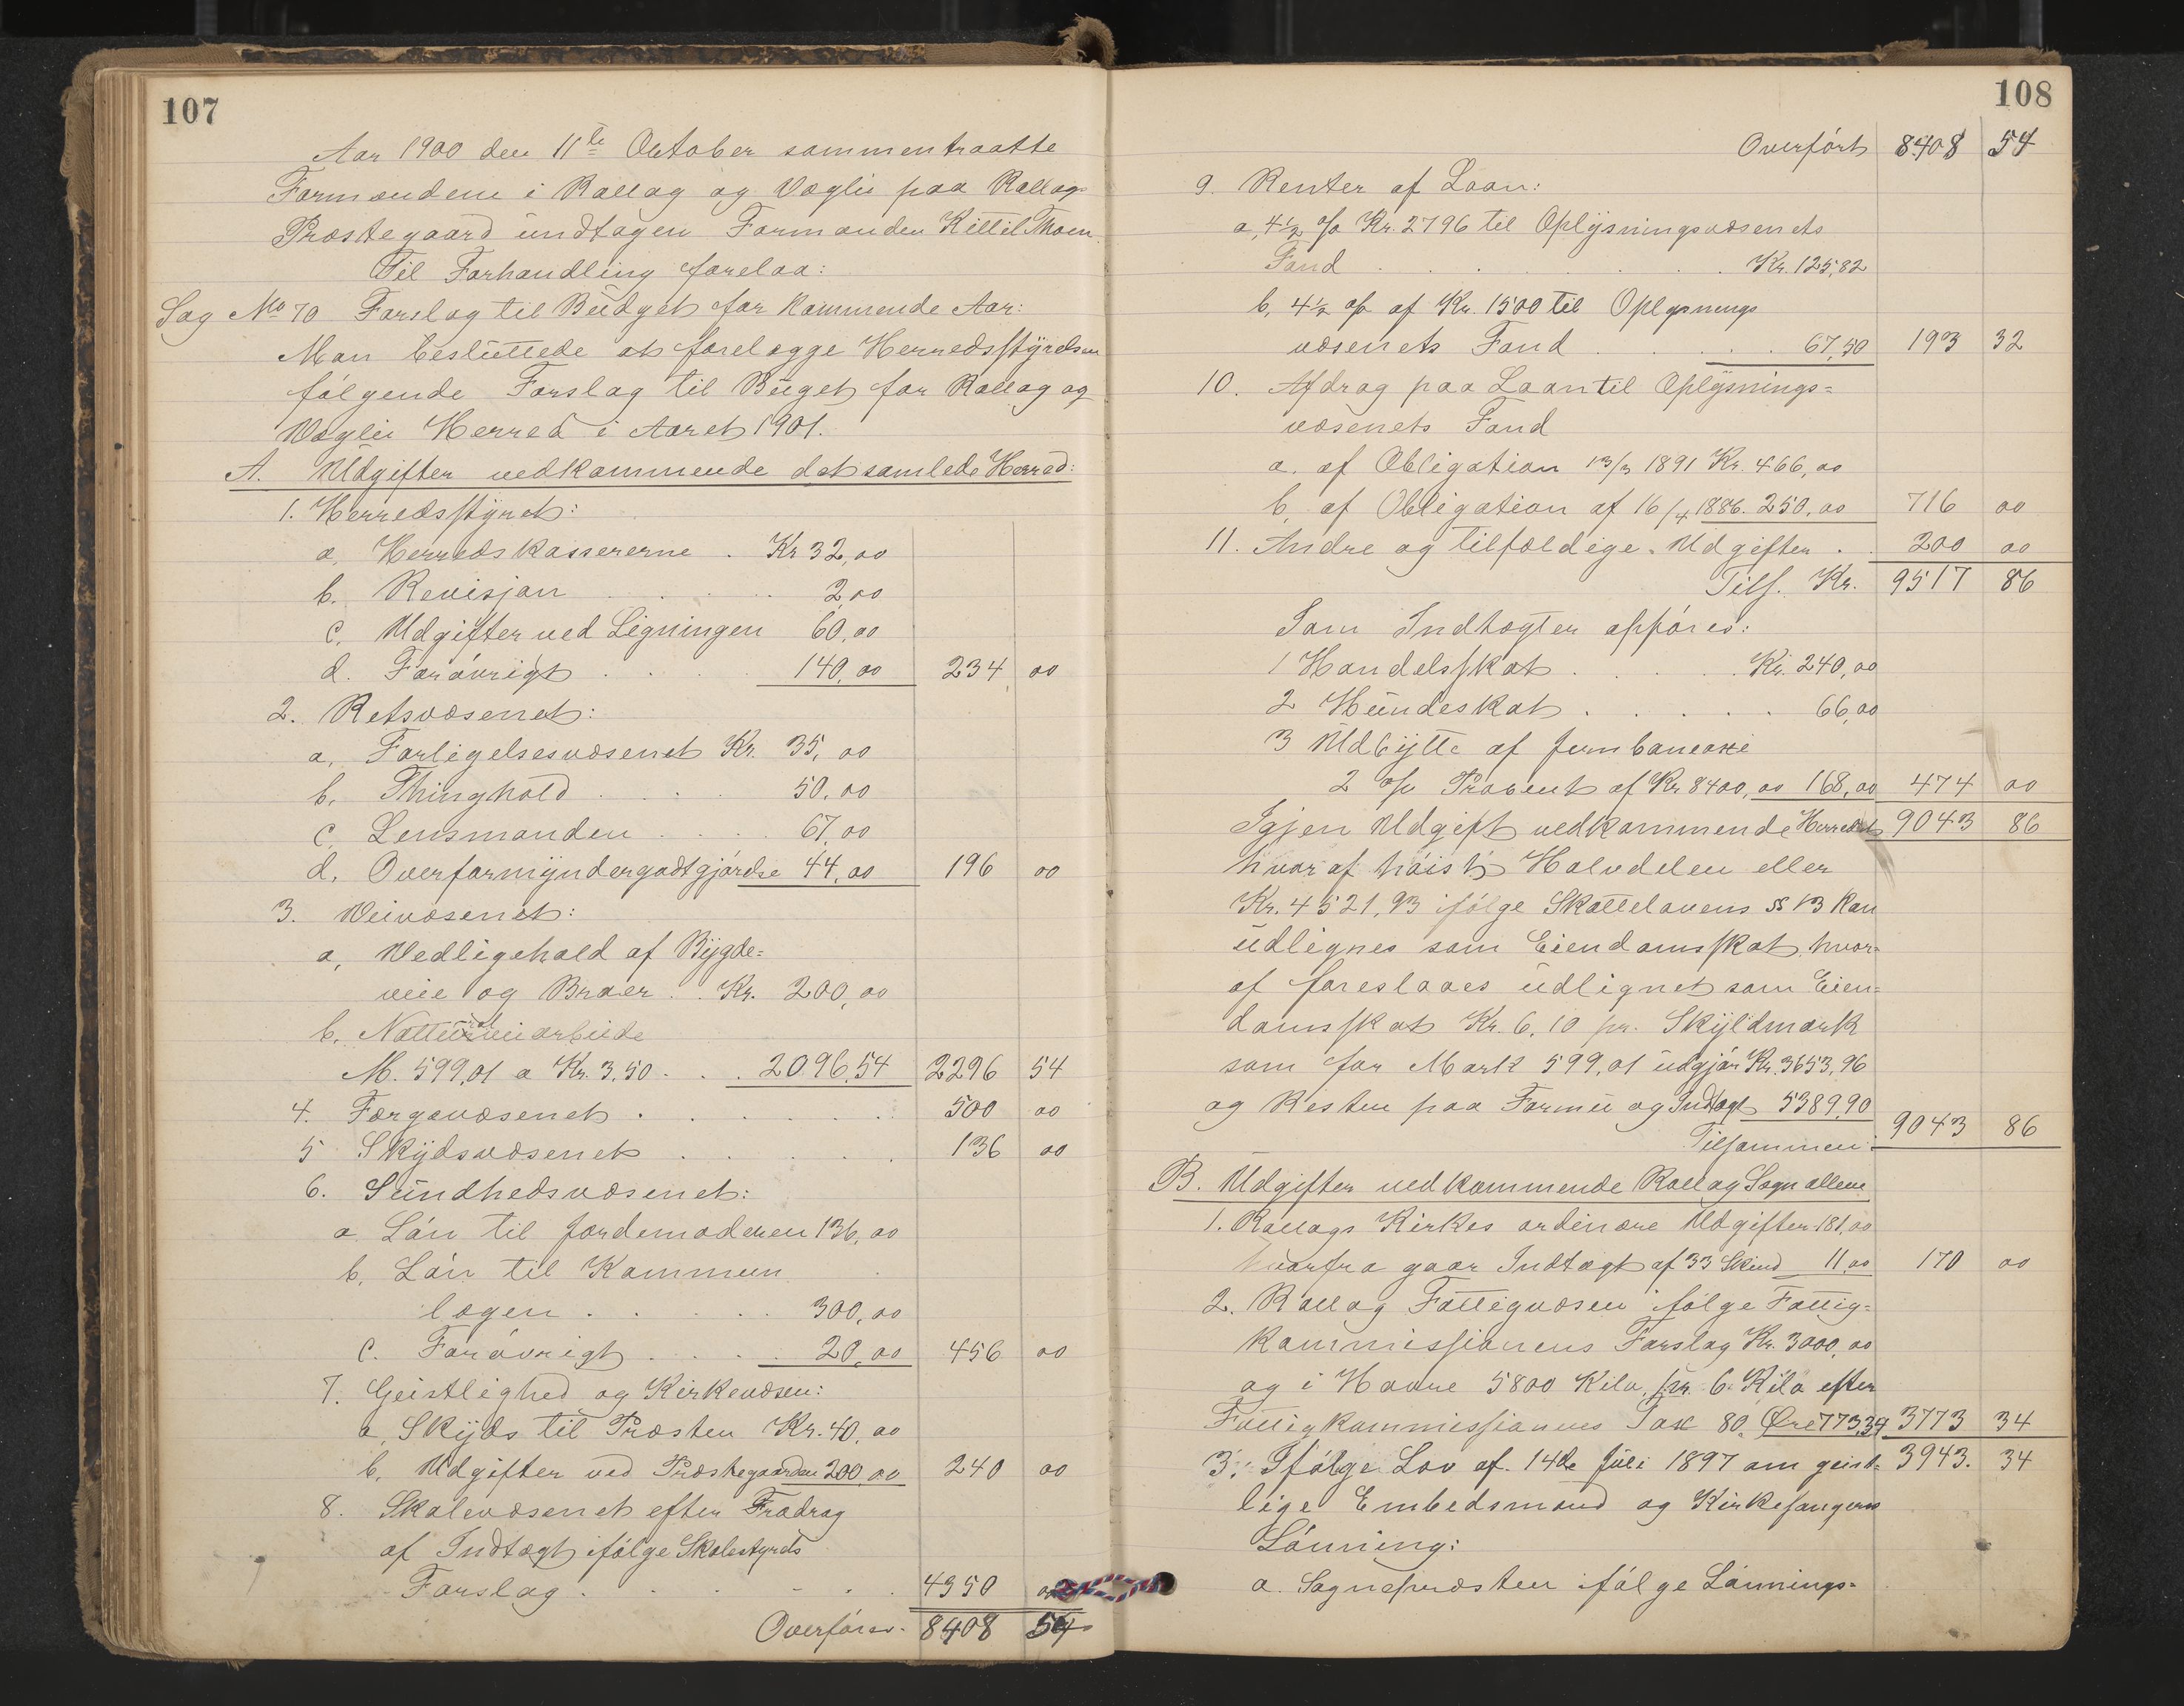 107
Aar 1900 den 11te October sammentraatte
Formændene i Rollag og Væglie paa Rollags
Præstegaard undtagen Formanden Kittil Thoen.
Til Forhandling forelaa:
Sag No 70 Forslag til Budget for kommende Aar:
Man besluttede at forelægge Herredsstyrelsen
følgende Forslag til Buget for Rollag og
Væglie Herred i Aaret 1901.
A. Udgifter vedkommende det samlede Herred:
1. Herredsstyret:
a, Herredskassererne . Kr 32,00
b. Revisjon . . . . 2,00
c. Udgifter ved Ligningen 60,00
d. Forøvrigt . . . . 140,00 234 00
2. Retsvæsenet:
a, Forligelsesvæsenet Kr. 35,00
b. Thinghold . . . . 50,00
c. Lensmanden . . . . 67,00
d. Overformyndergodtgjørelse 44,00 196 00
3. Veivæsenet:
a, Vedligehold af Bygde=
veie og Broer . . Kr. 200,00
b. Natturalveiarbeide
M. 599,01 a Kr. 3,50 . . . 2096,54 2296 54
4. Færgevæsenet . . . . . . 500 00
5 Skydsvæsenet . . . . . 136 00
6. Sundhedsvæsenet:
a Løn til Jordemoderen 136,00
b. Løn til Kommun
lægen . . . . . 300,00
c. Forøvrigt . . . . 20,00 456 00
7. Geistlighed og Kirkevæsen:
a, Skyds til Præsten Kr. 40,00
b. Udgifter ved Præstegaarden 200,00 240 00
8. Skolevæsenet efter Fradrag
af Indtægt ifølge Skolestyrets
Forslag . . . . . . 4350 00
Overføres. 8408 54
108
Overført 8408 54
9. Renter af Laan:
a, 4½ % Kr. 2796 til Oplysningsvæsenets
Fond . . . . . . . Kr. 125,82
b, 4½ % af Kr. 1500 til Oplysnings
væsenets Fond . . . . . 67,50 193 32
10. Afdrag paa Laan til Oplysnings=
væsenets Fond
a. af Obligation 13/3 1891 Kr. 466,00
b, af Obligation af 16/4 1886. 250,00 716 00
11. Andre og tilfældige Udgifter . . 200 00
Tils. Kr. 9517 86
Som Indtægter opføres:
1 Handelsskat . . . . . Kr. 240,00
2 Hundeskat . . . . . 66,00
3 Udbytte af Jernbaneaxie
2 % Procent af Kr 8400,00 168,00 474 00
Igjen Udgift vedkommende Herredet 9043 86
hvoraf høist Halvdelen eller
Kr. 4521,93 ifølge Skattelovens § 13 kan
udlignes som Eiendomsskat, hvor=
af foreslaaes udlignet som Eien=
domsskat Kr. 6,10 pr. Skyldmark
som for Mark 599,01 udgjør Kr. 3653,96
og Resten paa Formue og Indtægt 5389,90
Tilsammen: 9043 86
B. Udgifter vedkommende Rollag Sogn allene
1. Rollags Kirkes ordinære Udgifter 181,00
hvorfra gaar Indtægt af 33 Skind 11,00 170 00
2. Rollag Fattigvæsen ifølge Fattig=
kommissionens Forslag Kr. 3000,00
og i Havre 5800 Kilo, pr. 6 Kilo efter
Fattigkommissionens Tax 80 Øre 773,34 3773 34
3. Ifølge Lov af 14de Juli 1897 om geist= 3943. 34
lige Embedsmænd og Kirkesangeres
Lønning:
a. Sognepræsten ifølge Lønnings=